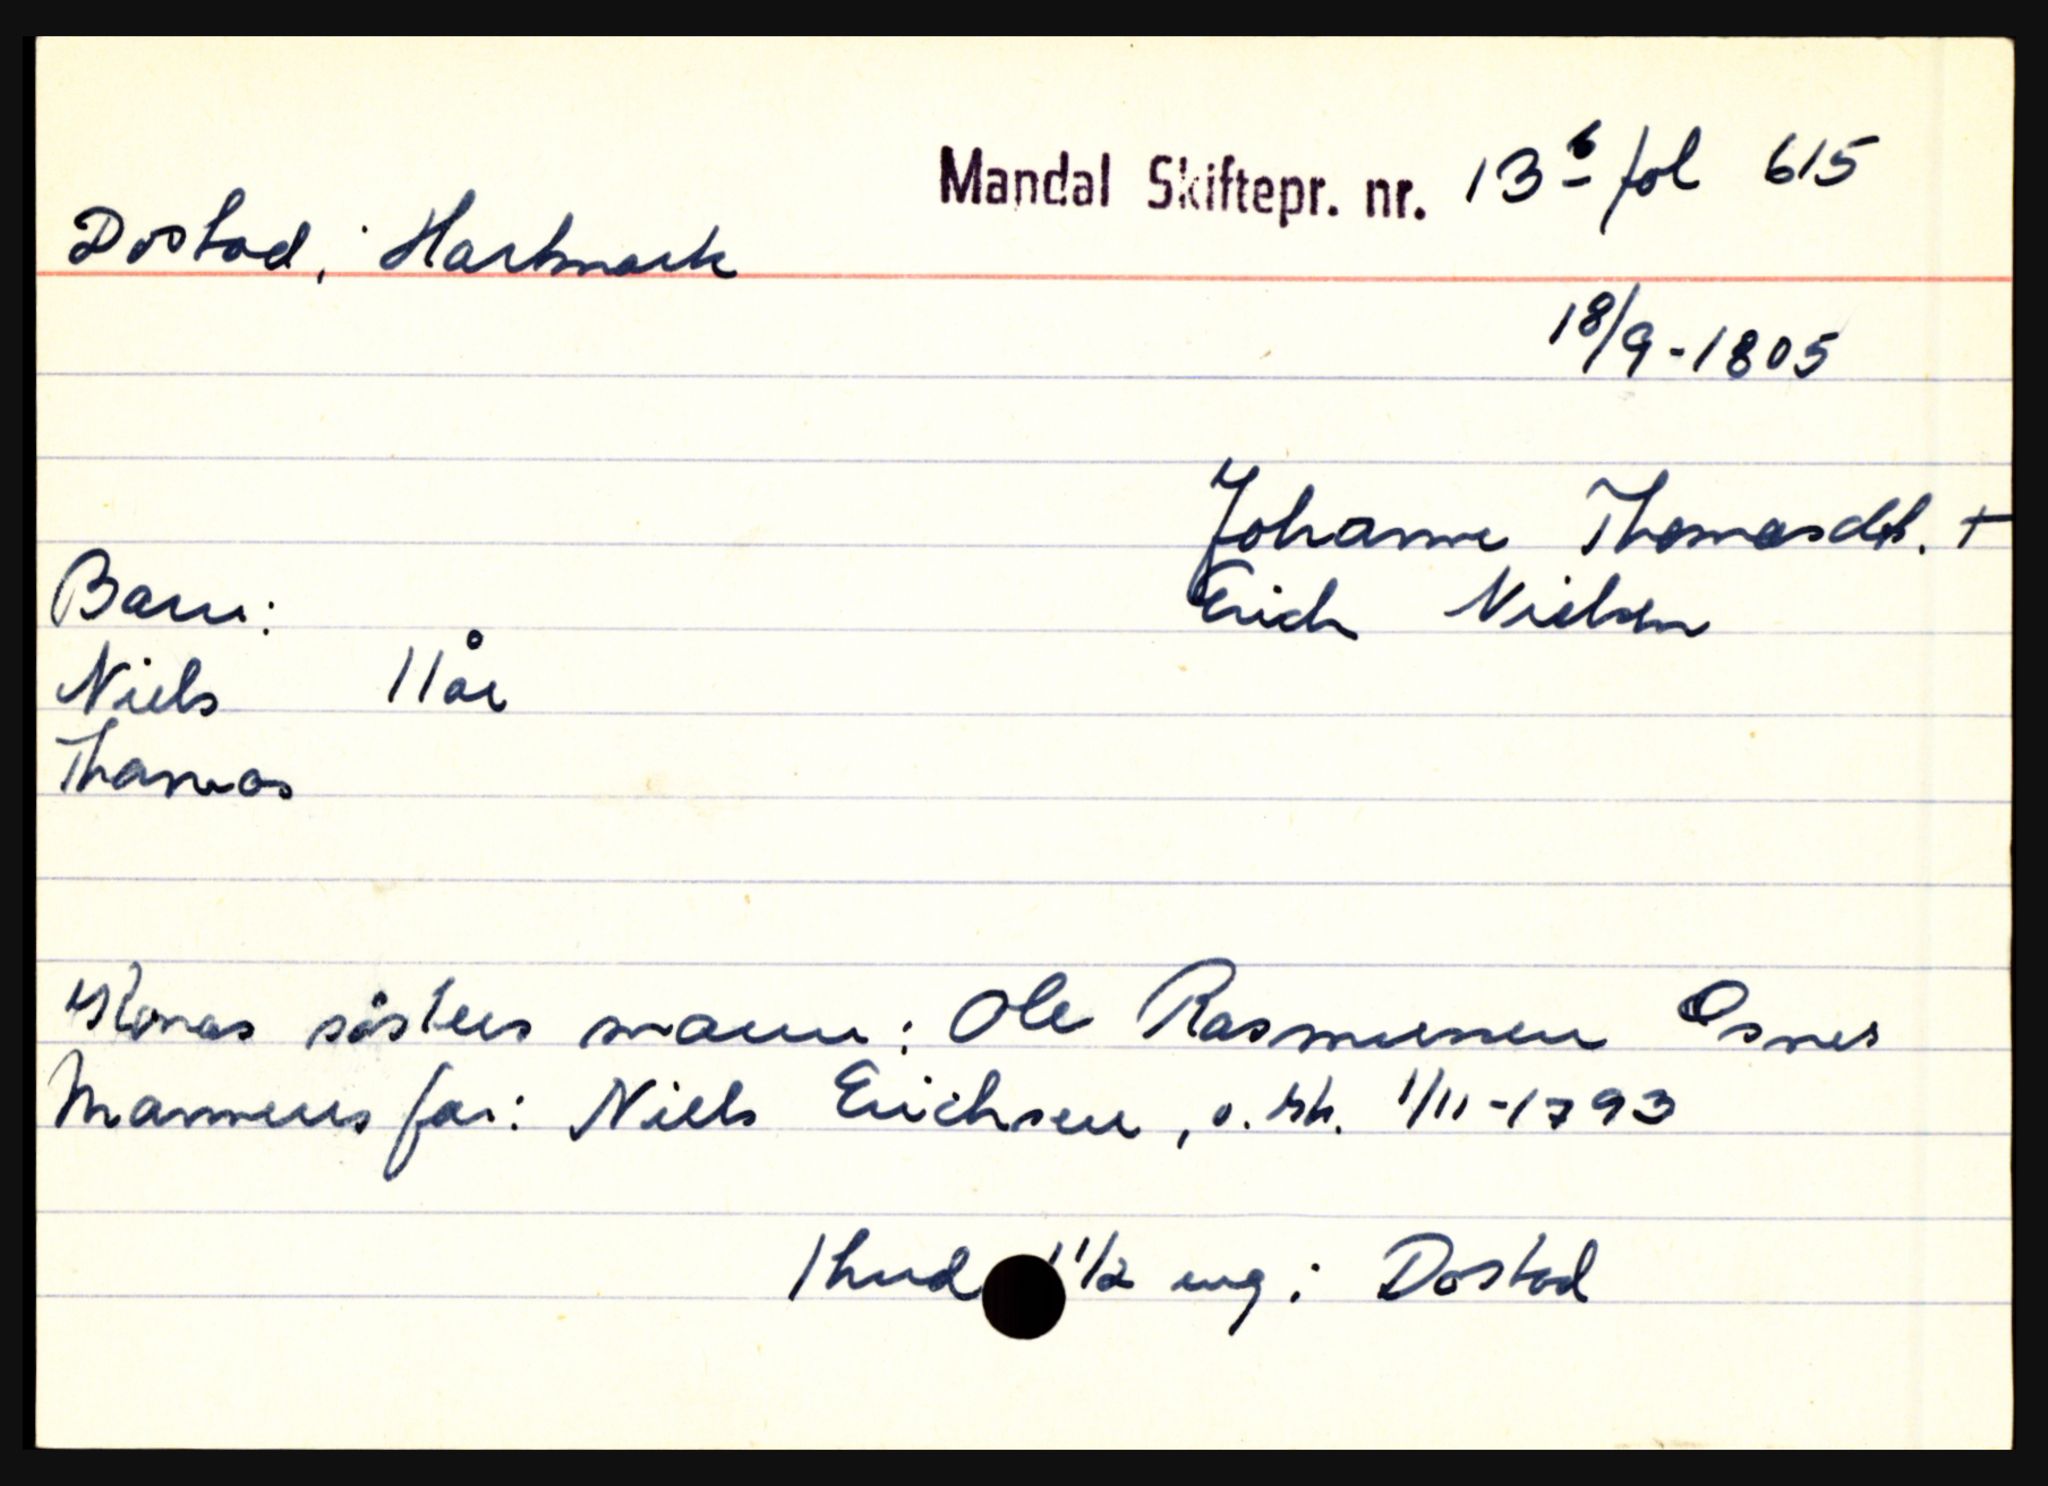 Mandal Skiftepr. nr. 13 b fol 615
Dostad, Hartmark
18/9-1805
Johanne Thomasdt. +
Erich Nielsen
Barn:
Niels 11 år
Thomas
Konas søsters mann: Ole Rasmussen Osnes
Mannens far: Niels Erichsen, o. sk. 1/11-1793
1 hud 1 1/2 eng i Dostad